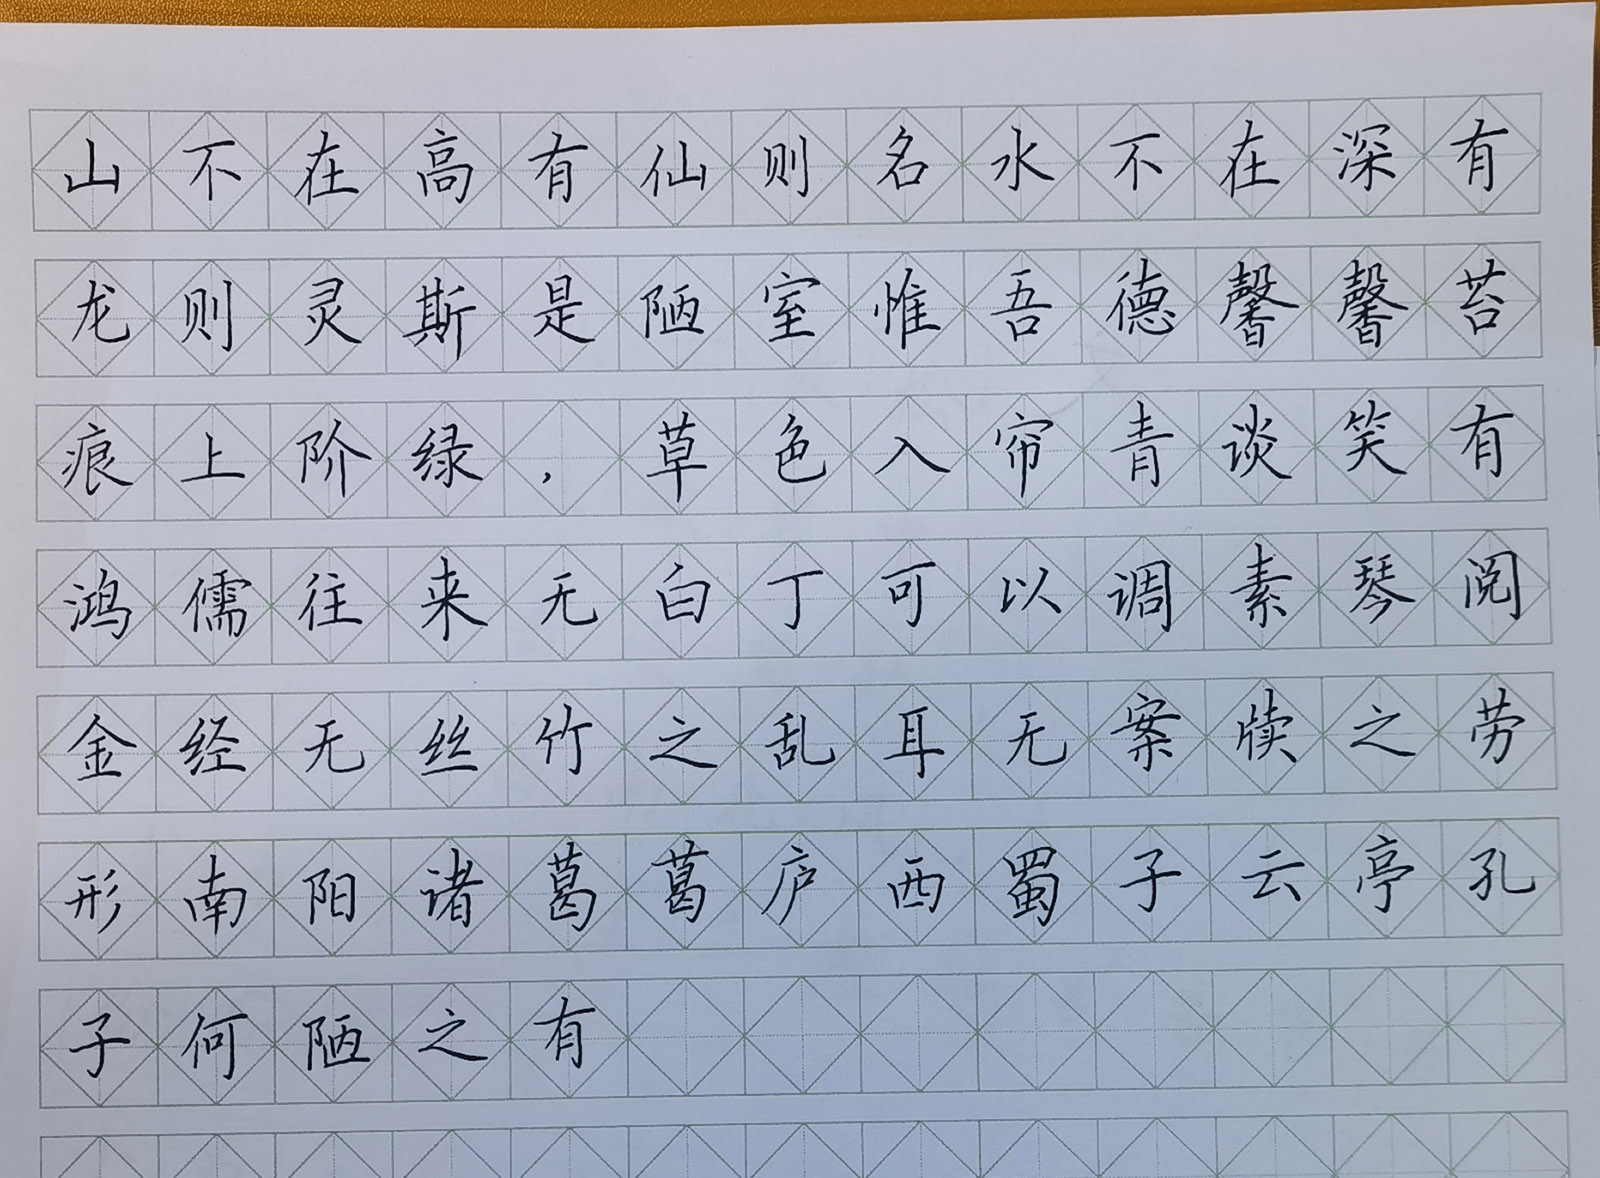 山不在高有仙则名水不在深有
龙则灵斯是陋室惟吾德馨馨苔
痕上阶绿，草色入帘青谈笑有
鸿儒往来无白丁可以调素琴阅
金经无丝竹之乱耳无案牍之劳
形南阳诸葛葛庐西蜀子云亭孔
子何陋之有